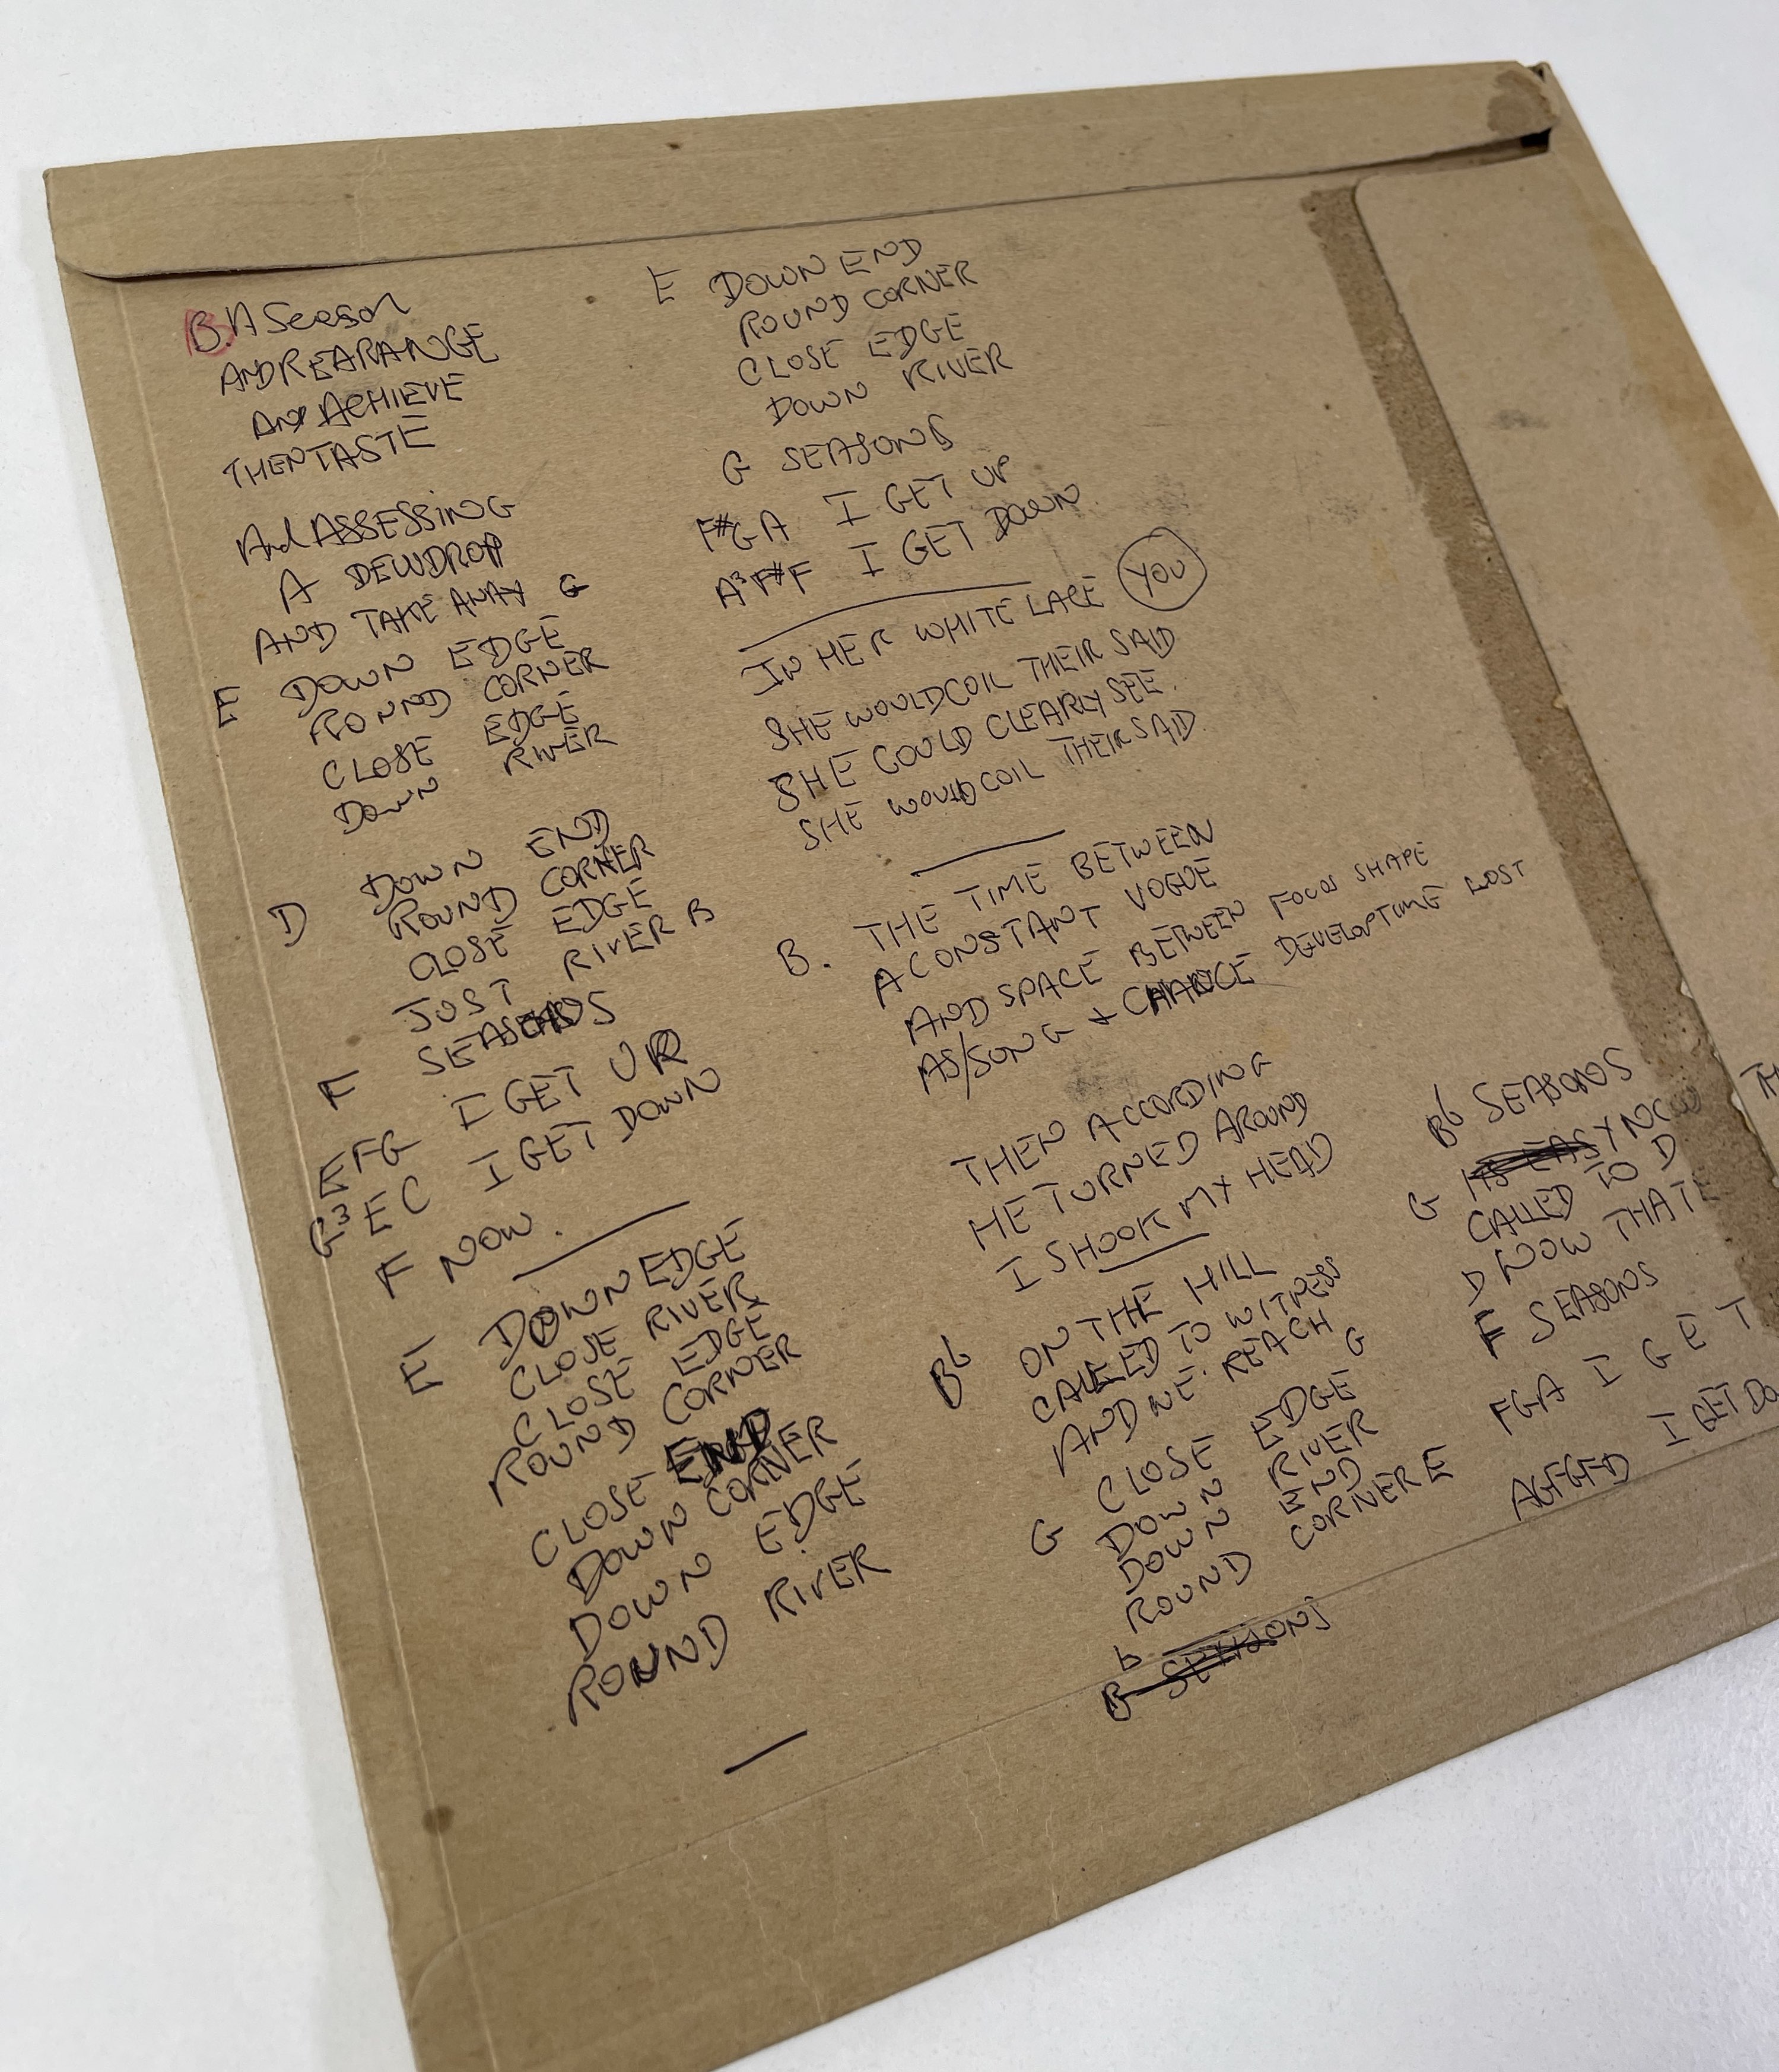 B. A Season
AND REARANGE
AND ACHIEVE
THEN TASTE
And ASSESSING
A DEWDROP
AND TAKE AWAY G
E DOWN EDGE
ROUND CORNER
CLOSE EDGE
DOWN RIVER
D DOWN END
ROUND CORNER
CLOSE EDGE
JUST RIVER B
F SEASONS
EFG I GET UP
G3 EC I GET DOWN
F NOW.
E DOWN EDGE
CLOSE RIVER
CLOSE EDGE
ROUND CORNER
CLOSE END
DOWN CORNER
DOWN EDGE
ROUND RIVER
E DOWN END
ROUND CORNER
CLOSE EDGE
DOWN RIVER
G SEASONS
F#GA I GET UP
A3F#F I GET DOWN
IN HER WHITE LACE YOU
SHE WOULD COIL THEIR SAID
SHE COULD CLEARLY SEE.
SHE WOULD COIL THEIR SAID.
B. THE TIME BETWEEN
A CONSTANT VOGUE
AND SPACE BETWEEN FOCUS SHAPE
AS/SONG + CHANCE DEVELOPTIME LOST
THEN ACCORDING
HE TURNED AROUND
I SHOOK MY HEAD
Bb ON THE HILL
CALLED TO WITNESS
AND WE REACH G
G CLOSE EDGE
DOWN RIVER
DOWN END
ROUND CORNER E
b
B SEASONS
Bb SEASONS
G ITS EASY NOW
CALLED TO D
D NOW THAT
F SEASONS
FGA I GET
AGFGFD I GET DO
TH